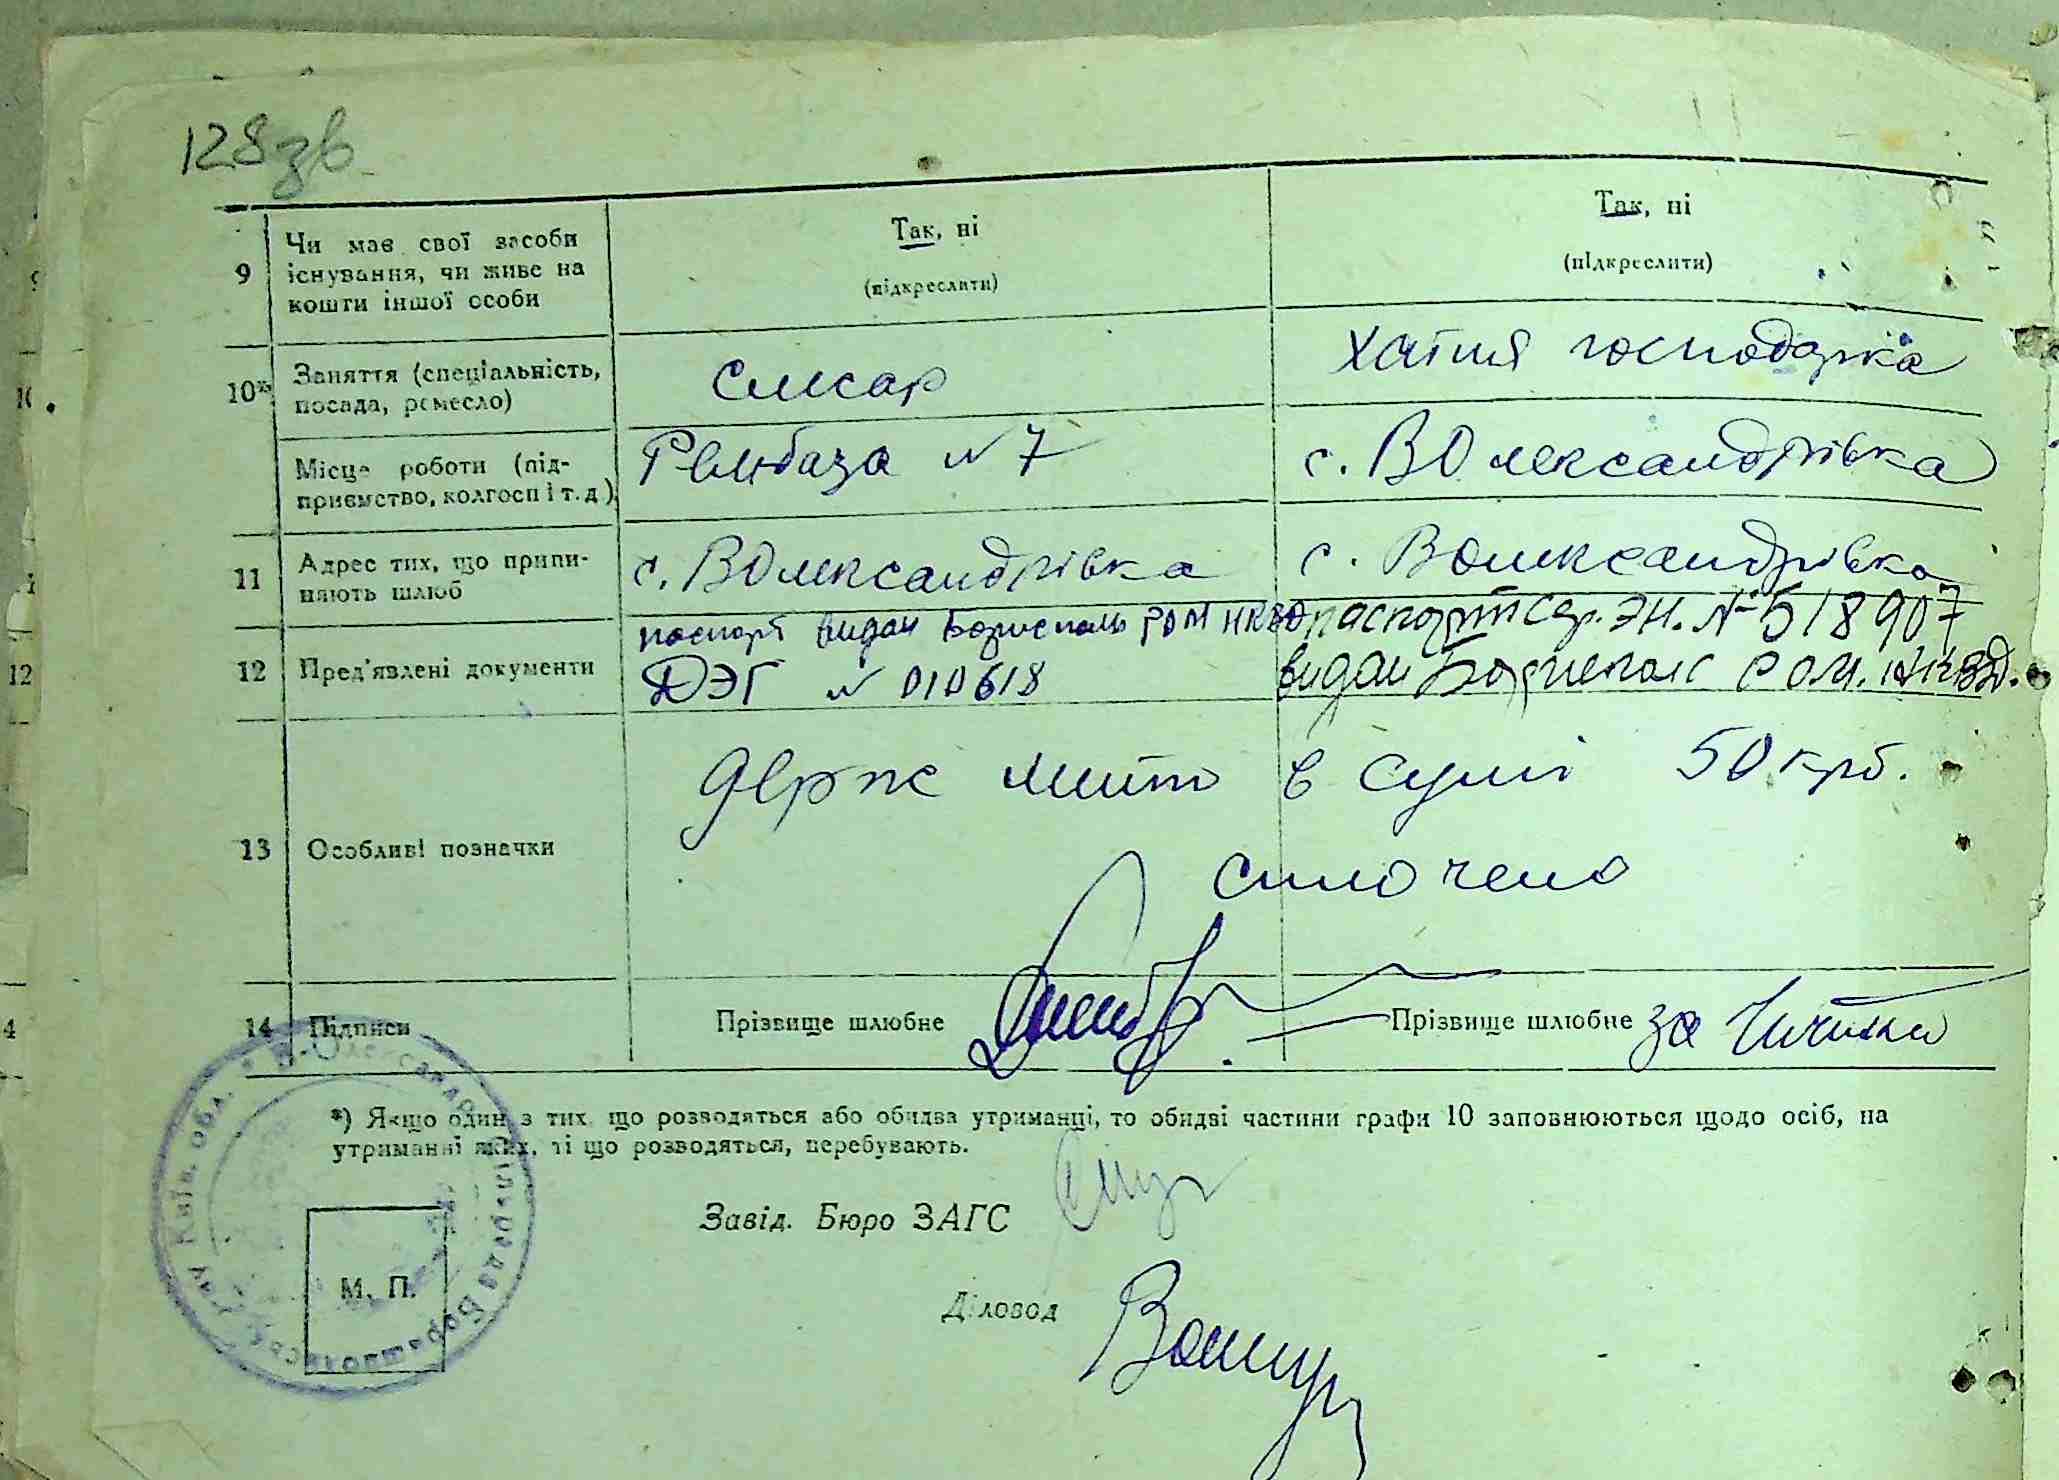 128зв.
9 Чи має свої засоби існування, чи живе на кошти іншої особи
Так, ні
(підкреслити)
Так, ні
(підкреслити)
10*) Заняття (спеціальність, посада, ремесло)
слюсар
хатня господарка
Місце роботи (підприємство, колгосп і т. д.)
Рембаза N 7
с. ВОлександрівка
11 Адрес тих, що припиняють шлюб
с. ВОлександрівка
с. ВОлександрівка
12 Пред'явлені документи
паспорт видан Бориспольс РОМ НКВД
ДЭГ N 010618
паспорт Сер. ЭН. № 518907
видан Бориспольс РОМ. НКВД.
13 Особливі позначки
Держ мито в сумі 50 крб.
сплочено
14 Підписи
Прізвище шлюбне
Прізвище шлюбне за
*) Якщо один з тих, що розводяться або обидва утриманці, то обидві частини графи 10 заповнюються щодо осіб, на
утриманні яких, ті що розводяться, перебувають.
Завід. Бюро ЗАГС
Діловод
М. П.